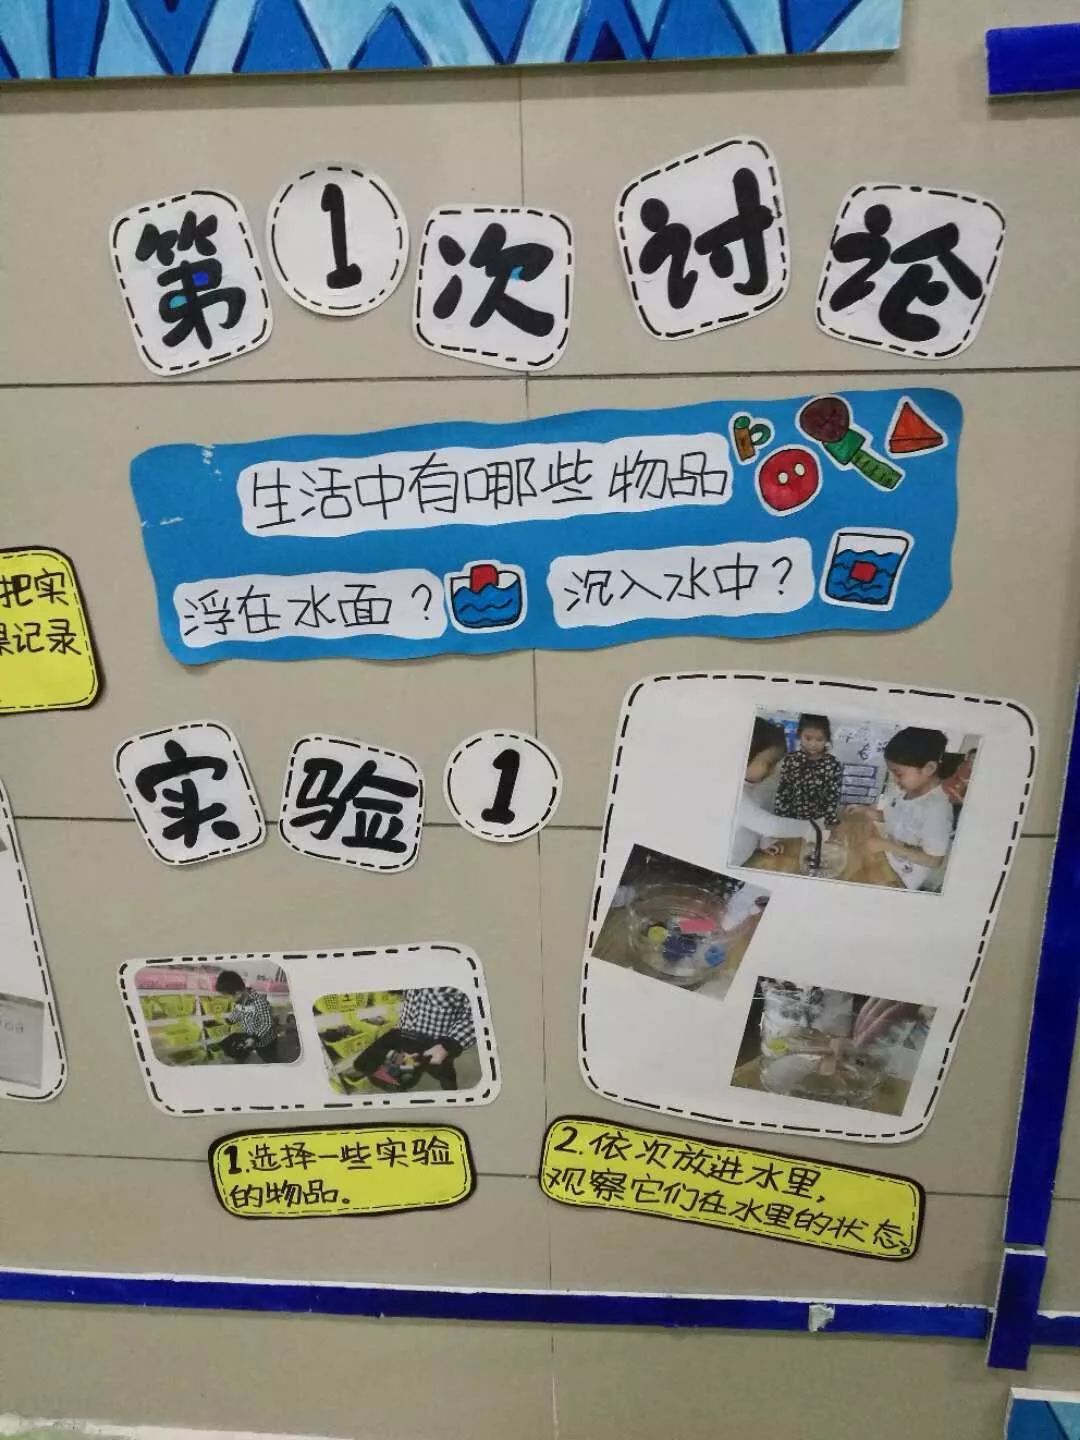 第1次讨论
生活中有哪些物品
浮在水面?
沉入水中?
把实
果记录
实验1
1.选择一些实验
的物品。
2.依次放进水里,
观察它们在水里的状态。